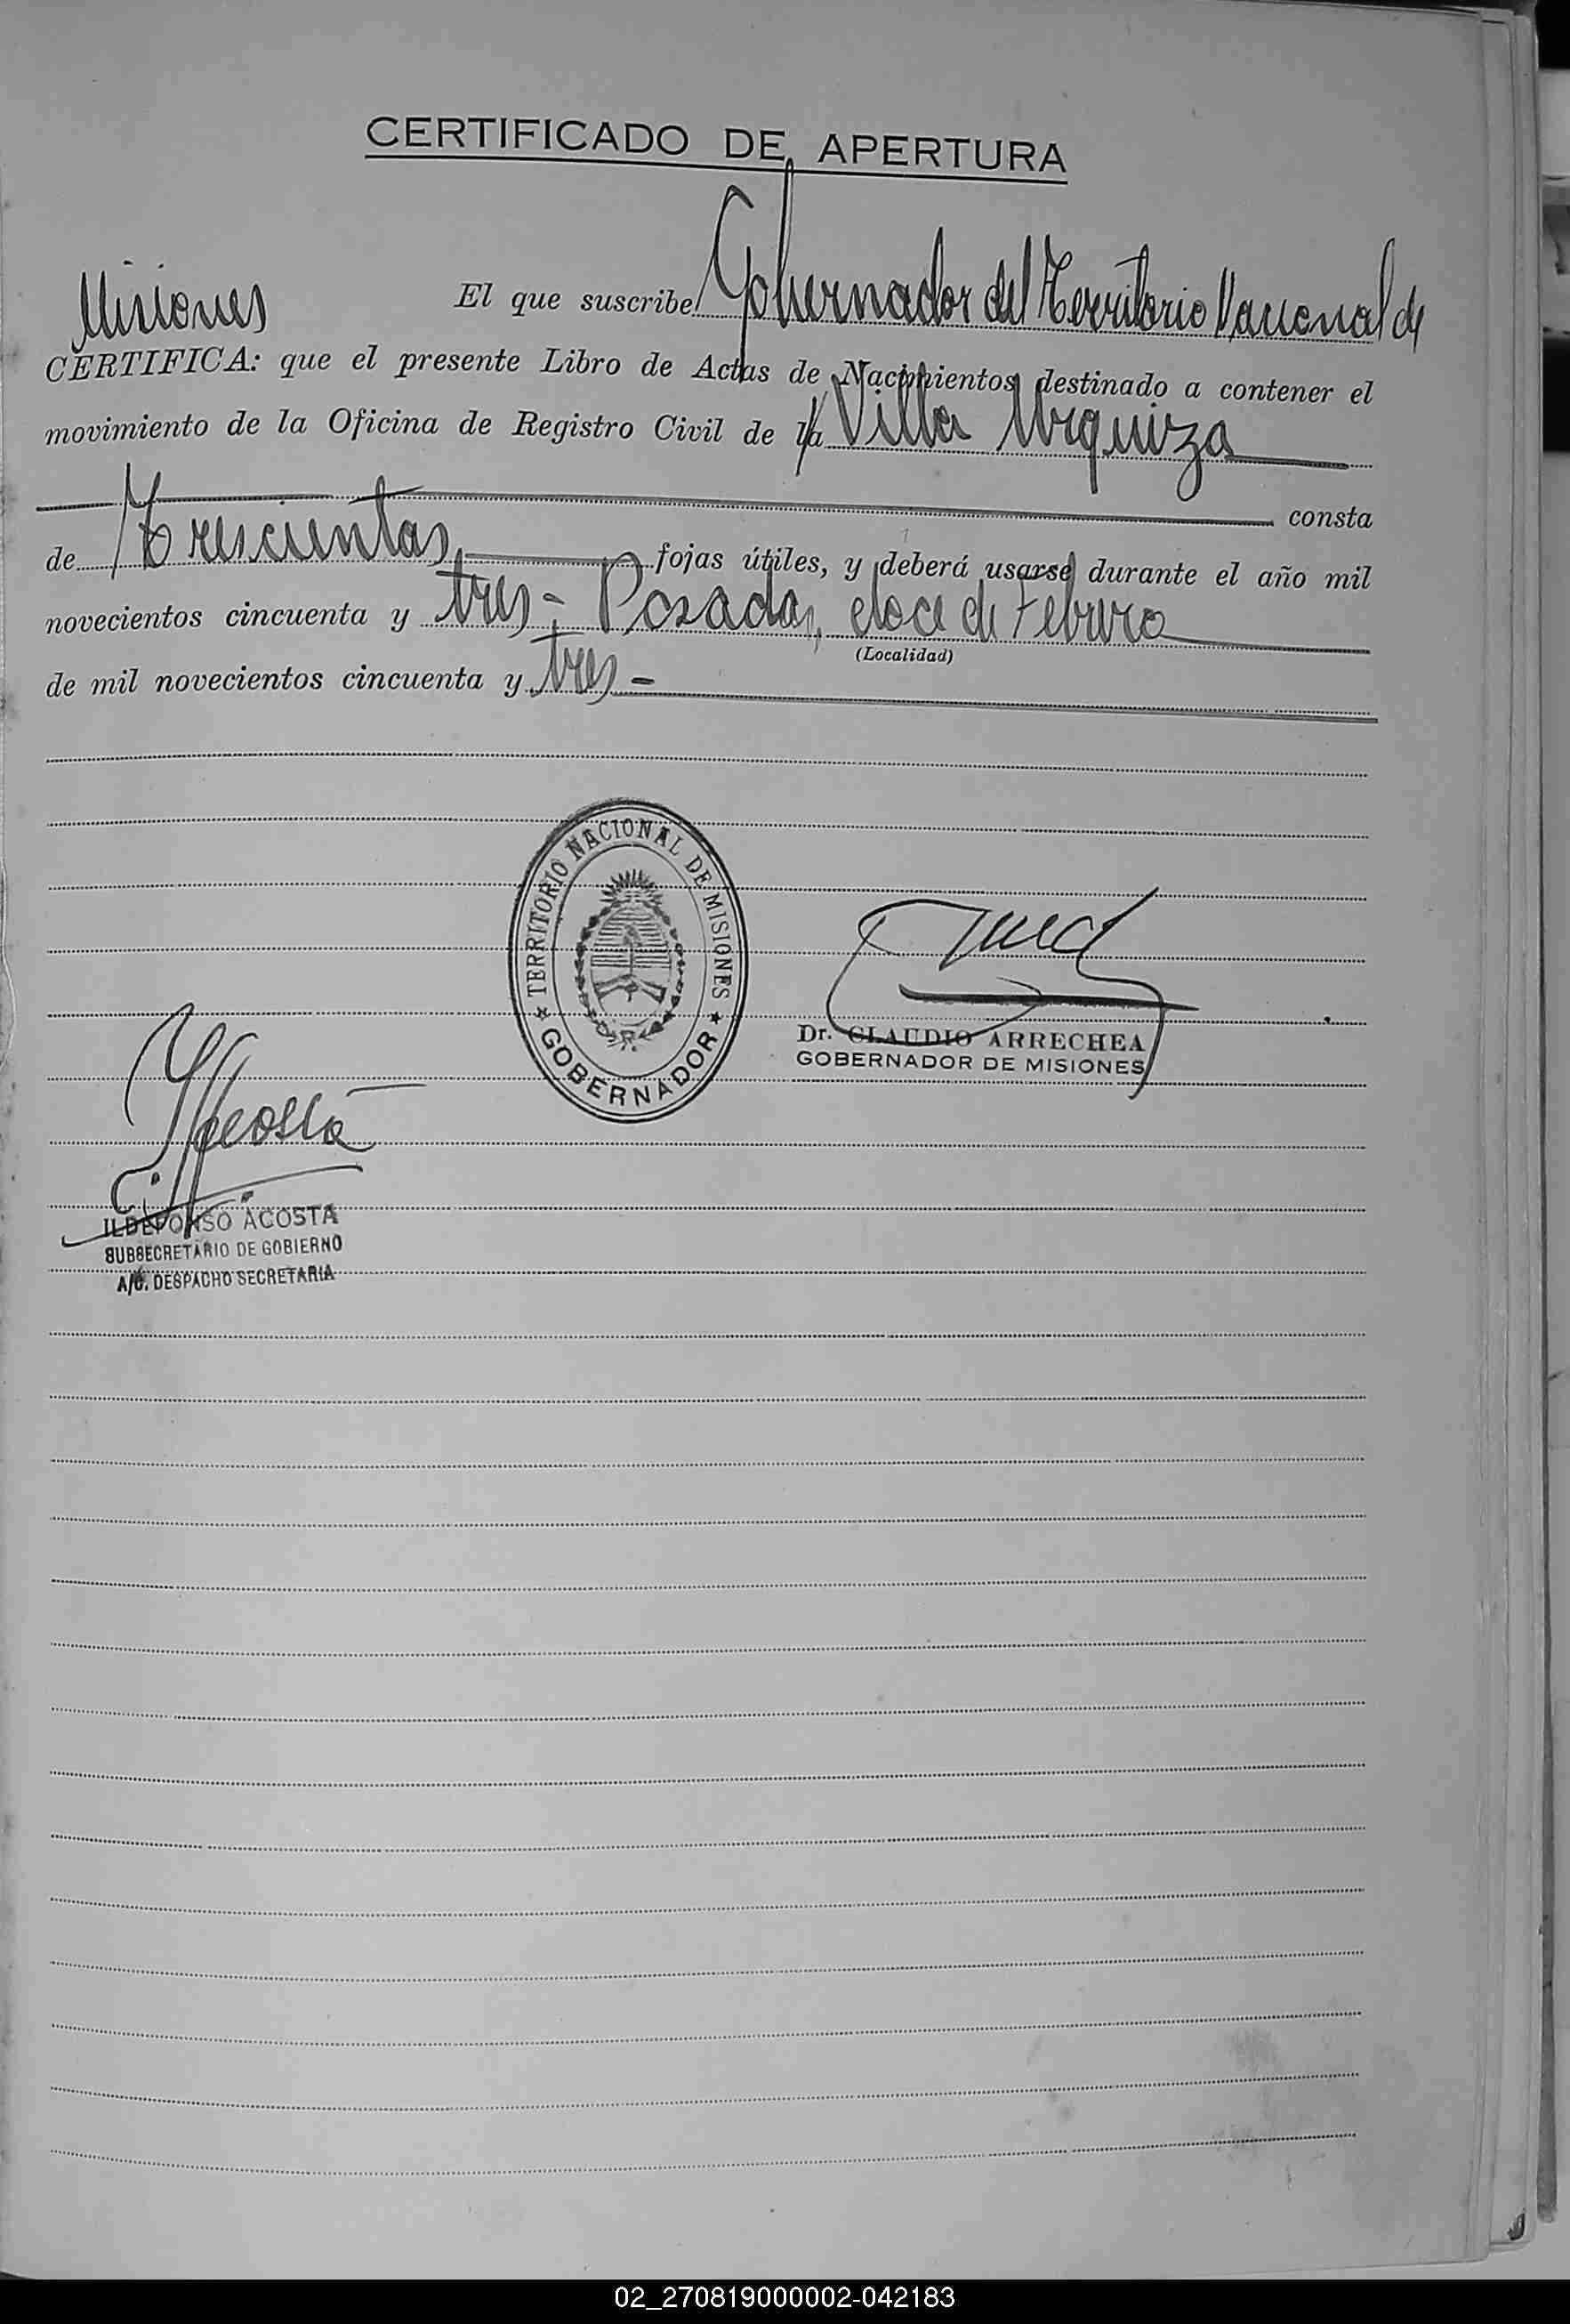 CERTIFICADO DE APERTURA
El que suscribe, Gobernador del Territorio Nacional de
Misiones
CERTIFICA: que el presente Libro de Actas de Nacimientos destinado a contener el
movimiento de la Oficina de Registro Civil de la Villa Urquiza
consta
de Trescientas fojas útiles, y deberá usarse durante el año mil
novecientos cincuenta y tres - Posadas, doce de Febrero
(Localidad)
de mil novecientos cincuenta y tres -
TERRITORIO NACIONAL DE MISIONES
GOBERNADOR
Dr. CLAUDIO ARRECHEA
GOBERNADOR DE MISIONES
Acosta
ILDEFONSO ACOSTA
SUBSECRETARIO DE GOBIERNO
A/C. DESPACHO SECRETARIA
02_270819000002-042183